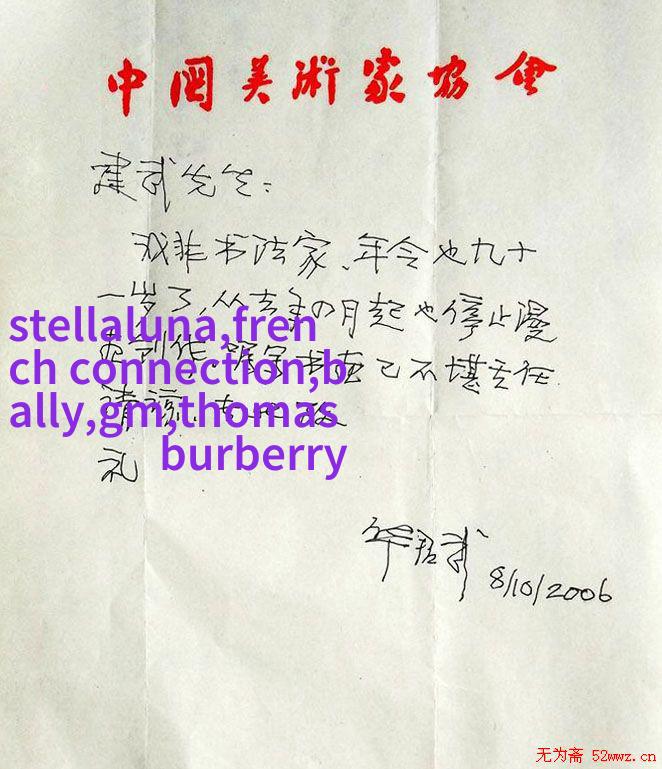 中国美術家协会
建武先生:
我非书法家、年令也九十
一岁了,从去年四月起也停止漫
画创作,
己不堪主任.
stellaluna,fren
ch connection,b
ally,gm,thomas
burberry
请谅.
礼
华君武
8/10/2006
无为斋 52wwz.cn